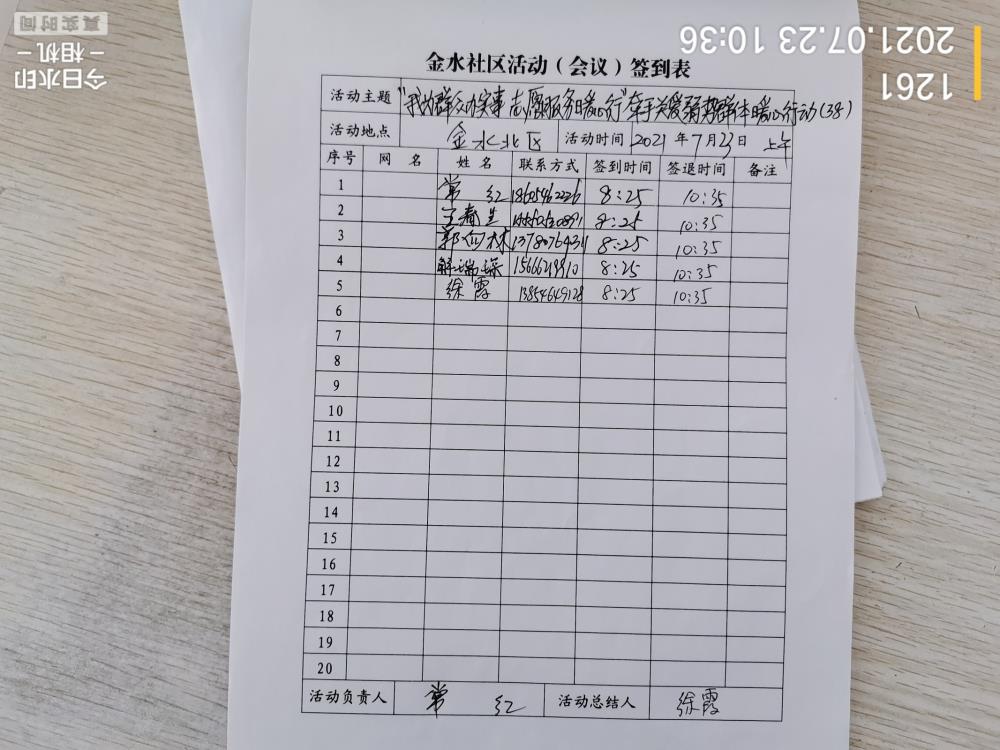 2021.07.23 10:36
1261
今日水印
相机
真实时间
金水社区活动（会议）签到表
活动主题 "我为群众办实事 志愿服务暖心行"牵手关爱弱势群体暖心行动(38)
活动地点 金水北区 活动时间 2021 年 7 月 23 日 上午
序号 网 名 姓 名 联系方式 签到时间 签退时间 备注
1 常 红 18605462226 8:25 10:35
2 王春兰 8:25 10:35
3 郭 林 8:25 10:35
4 解瑞琛 8:25 10:35
5 徐霞 13854649128 8:25 10:35
6
7
8
9
10
11
12
13
14
15
16
17
18
19
20
活动负责人 常 红 活动总结人 徐霞